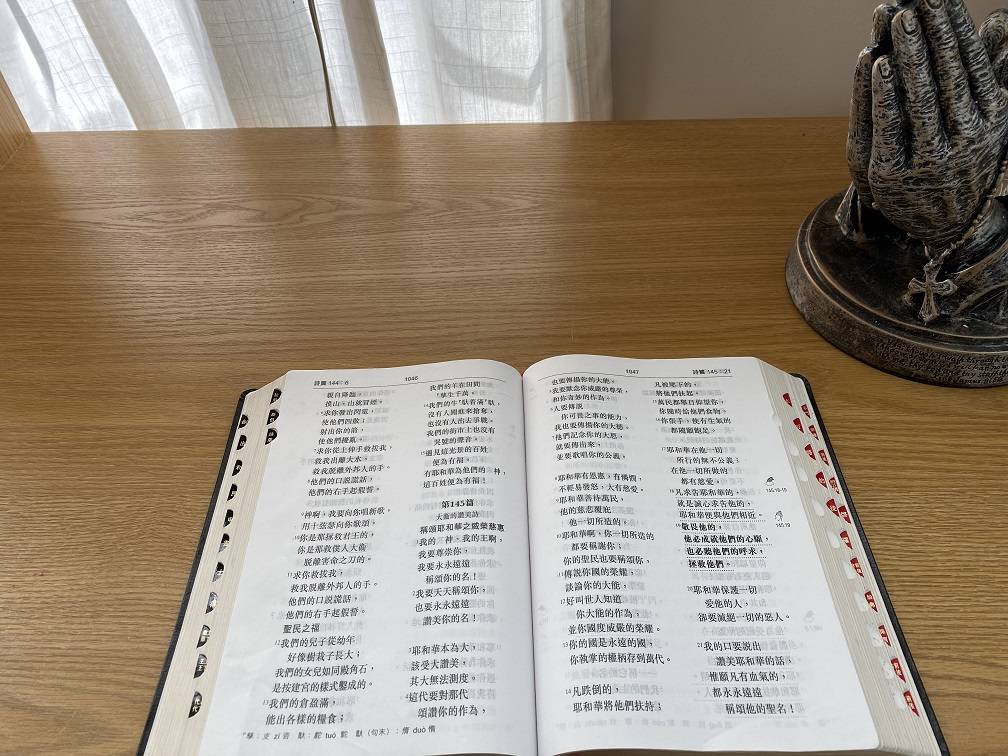 詩篇 144 6
1046
親自降臨，
摸山，山就冒煙。
求你發出閃電，
使他們四散；
射出你的箭，
使他們擾亂。
求你從上伸手救拔我，
救我出離大水，
救我脫離外邦人的手。
他們的口說謊話；
他們的右手起假誓。
神啊，我要向你唱新歌，
用十弦瑟向你歌頌。
你是那拯救君王的，
你是那救僕人大衛
脫離害命之刀的。
求你救拔我，
救我脫離外邦人的手。
他們的口說謊話，
他們的右手起假誓。
聖民之福
我們的兒子從幼年
好像樹栽子長大；
我們的女兒如同殿角石，
是按建宮的樣式鑿成的。
我們的倉盈滿，
能出各樣的糧食；
我們的羊在田間
孳生千萬。
我們的牛馱着滿馱，
沒有人闖進來搶奪，
也沒有人出去爭戰。
我們的街市上也沒有
哭號的聲音。
遇見這光景的百姓
便為有福；
有耶和華為他們的 神，
這百姓便為有福！
第145篇
大衛的讚美詩
稱頌耶和華之威榮慈惠
我的 神、我的王啊，
我要尊崇你，
我要永永遠遠
稱頌你的名！
我要天天稱頌你，
也要永永遠遠
讚美你的名！
耶和華本為大，
該受大讚美，
其大無法測度。
這代要對那代
頌讚你的作為，
孳：皮 zī 音 馱：駝 tuó 駝 馱（句末）：惰 duò 惰
1047
詩篇 145 21
也要傳揚你的大能。
我要默念你威嚴的尊榮，
和你奇妙的作為。
人要傳說
你可畏之事的能力，
我也要傳揚你的大德。
他們記念你的大恩，
就要傳出來，
並要歌唱你的公義。
耶和華有恩惠，有憐憫，
不輕易發怒，大有慈愛。
耶和華善待萬民，
他的慈悲覆庇
他一切所造的。
耶和華啊，你一切所造的
都要稱謝你；
你的聖民也要稱頌你，
傳說你國的榮耀，
談論你的大能，
好叫世人知道
你大能的作為，
並你國度威嚴的榮耀。
你的國是永遠的國，
你執掌的權柄存到萬代。
凡跌倒的，
耶和華將他們扶持；
凡被壓下的，
將他們扶起。
萬民都舉目仰望你，
你隨時給他們食物。
你張手，使有生氣的
都隨願飽足。
耶和華在他一切
所行的無不公義；
在他一切所做的
都有慈愛。
凡求告耶和華的，
就是誠心求告他的，
耶和華便與他們相近。
敬畏他的，
他必成就他們的心願，
也必聽他們的呼求，
拯救他們。
耶和華保護一切
愛他的人，
卻要滅絕一切的惡人。
我的口要說出
讚美耶和華的話；
惟願凡有血氣的，
都永永遠遠
稱頌他的聖名！
145:18-19
145:19